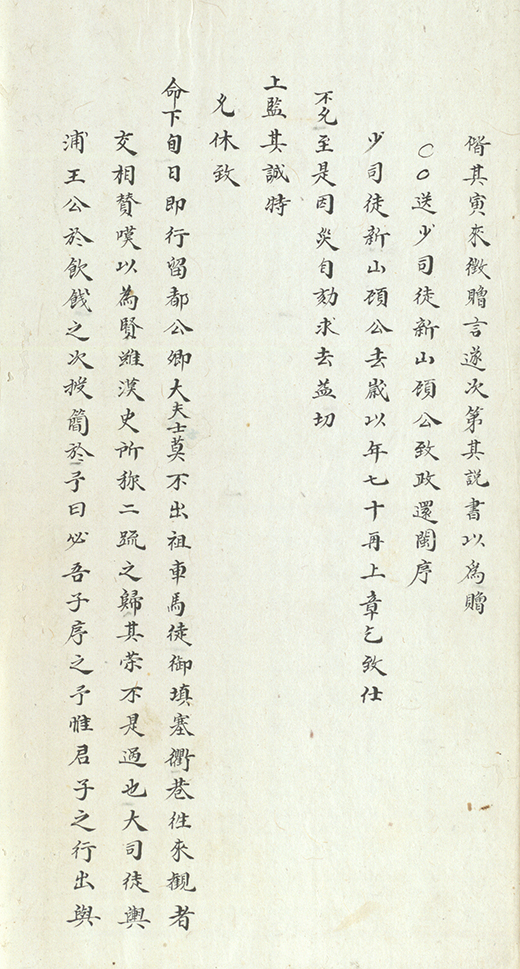 偕其寅來徵贈言遂次第其説書以爲贈
○○送少司徒新山碩公致政還閩序
少司徒新山碩公去歲以年七十再上章乞致仕
不允至是因災自劾求去益切
上監其誠特
允休致
命下旬日即行留都公卿大夫士莫不出祖車馬徒御填塞衢巷徃來觀者
交相賛嘆以為賢雖漢史所称二疏之歸其荣不是過也大司徒輿
浦王公於飲餞之次授簡於予曰必吾子序之予惟君子之行出與